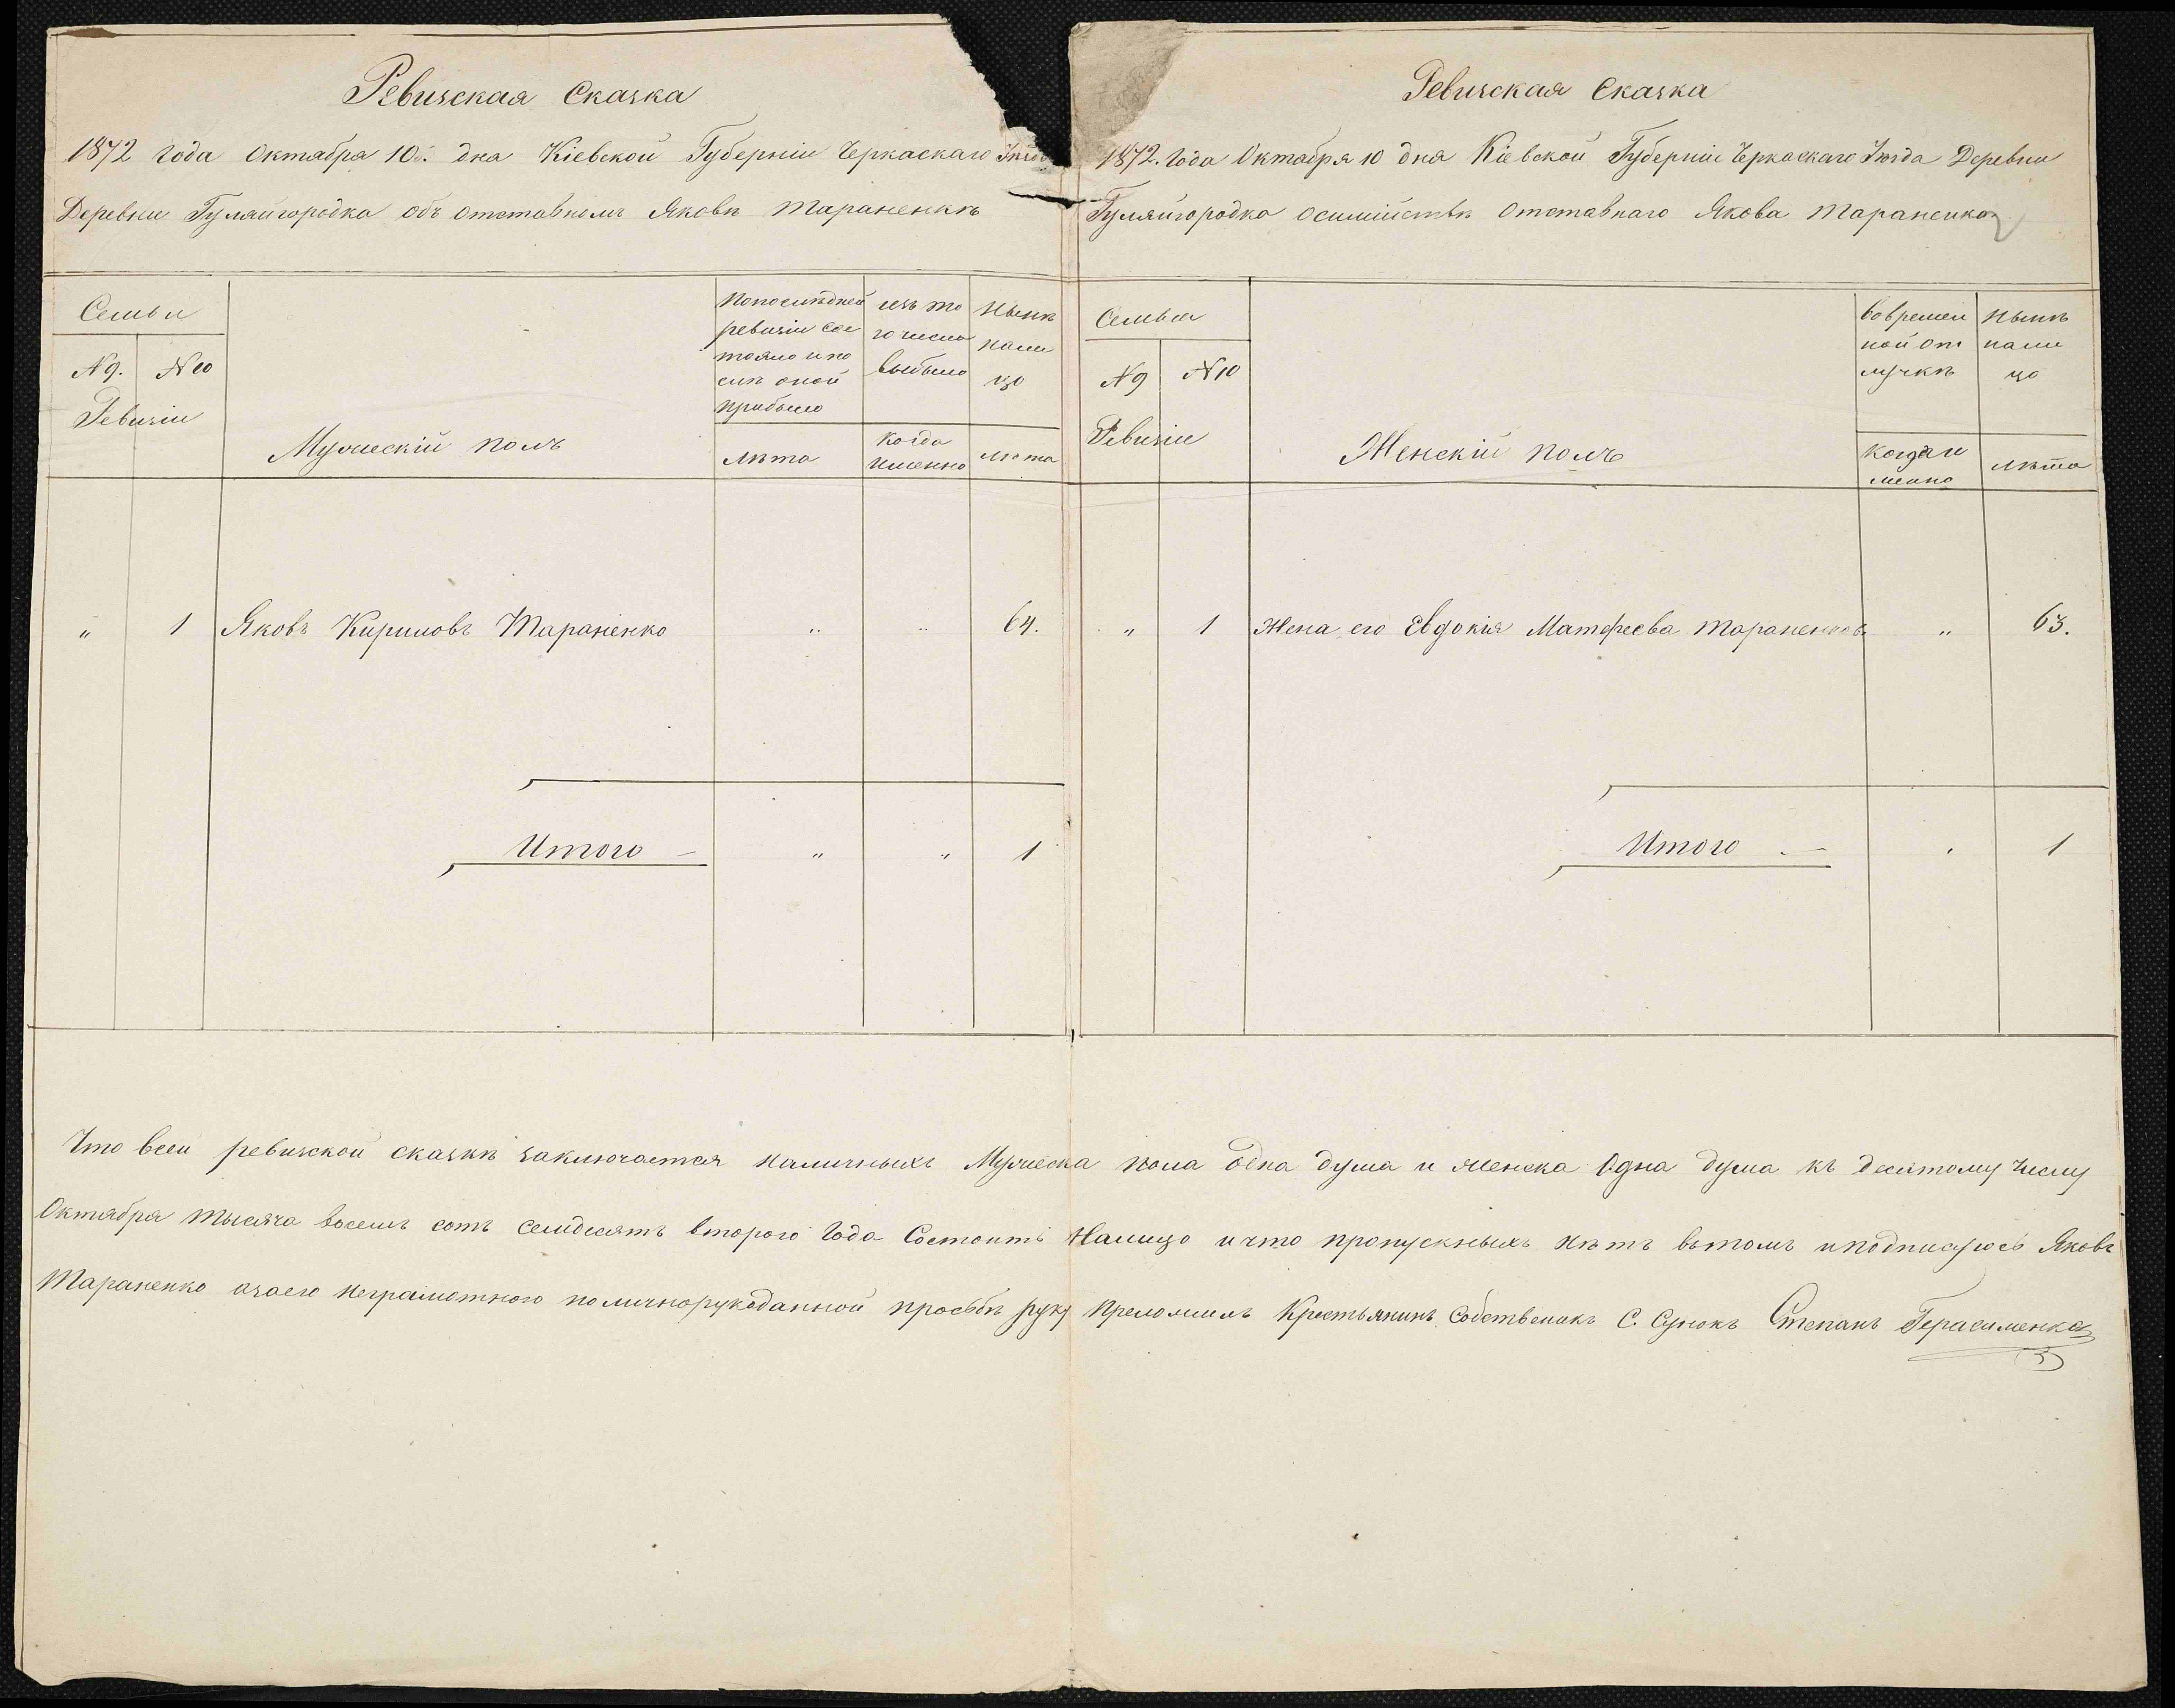 Ревизская Сказка
1872 года Октября 10. дня Кіевской Губерніи Черкаскаго Уезда
Деревни Гуляйгородка объ отставномъ Яковѣ Тараненкѣ
Семьи
N 9. N 10
Ревизіи
Мужескій полъ
Попослѣдней
ревизіи сос
тояло и по
слѣ оной
прибыло
лѣта
изъ то
го числа
выбыло
когда
именно
Нынѣ
нали
цо
лѣта
„ 1 Яковъ Кириловъ Тараненко „ „ 64.
Итого „ „ 1
Ревизская Сказка
1872. года Октября 10 дня Кіевской Губерніи Черкаскаго Уезда Деревни
Гуляйгородка осимійствѣ Отставнаго Якова Тараненко
Семьи
N 9 N 10
Ревизіи
Женскій полъ
вовремен
ной от
лучкѣ
когда и
менно
Нынѣ
нали
цо
лѣта
„ 1 Жена его Евдокія Матфеева Тараненкова „ 63.
Итого 1
Что всей ревизской сказкѣ заключается наличныхъ Мужеска пола Одна душа и женска Одна душа къ десятому Числу
Октября тысяча восемь сотъ семдесятъ втораго Года Состоитъ Налицо и что пропускныхъ нѣтъ втомъ иподписуюсъ Яковъ
Тараненко азаего неграмотнаго поличнорукоданной просьбѣ руку преложилъ Крестьянинъ Собственикъ С. Сунокъ Степанъ Герасименко